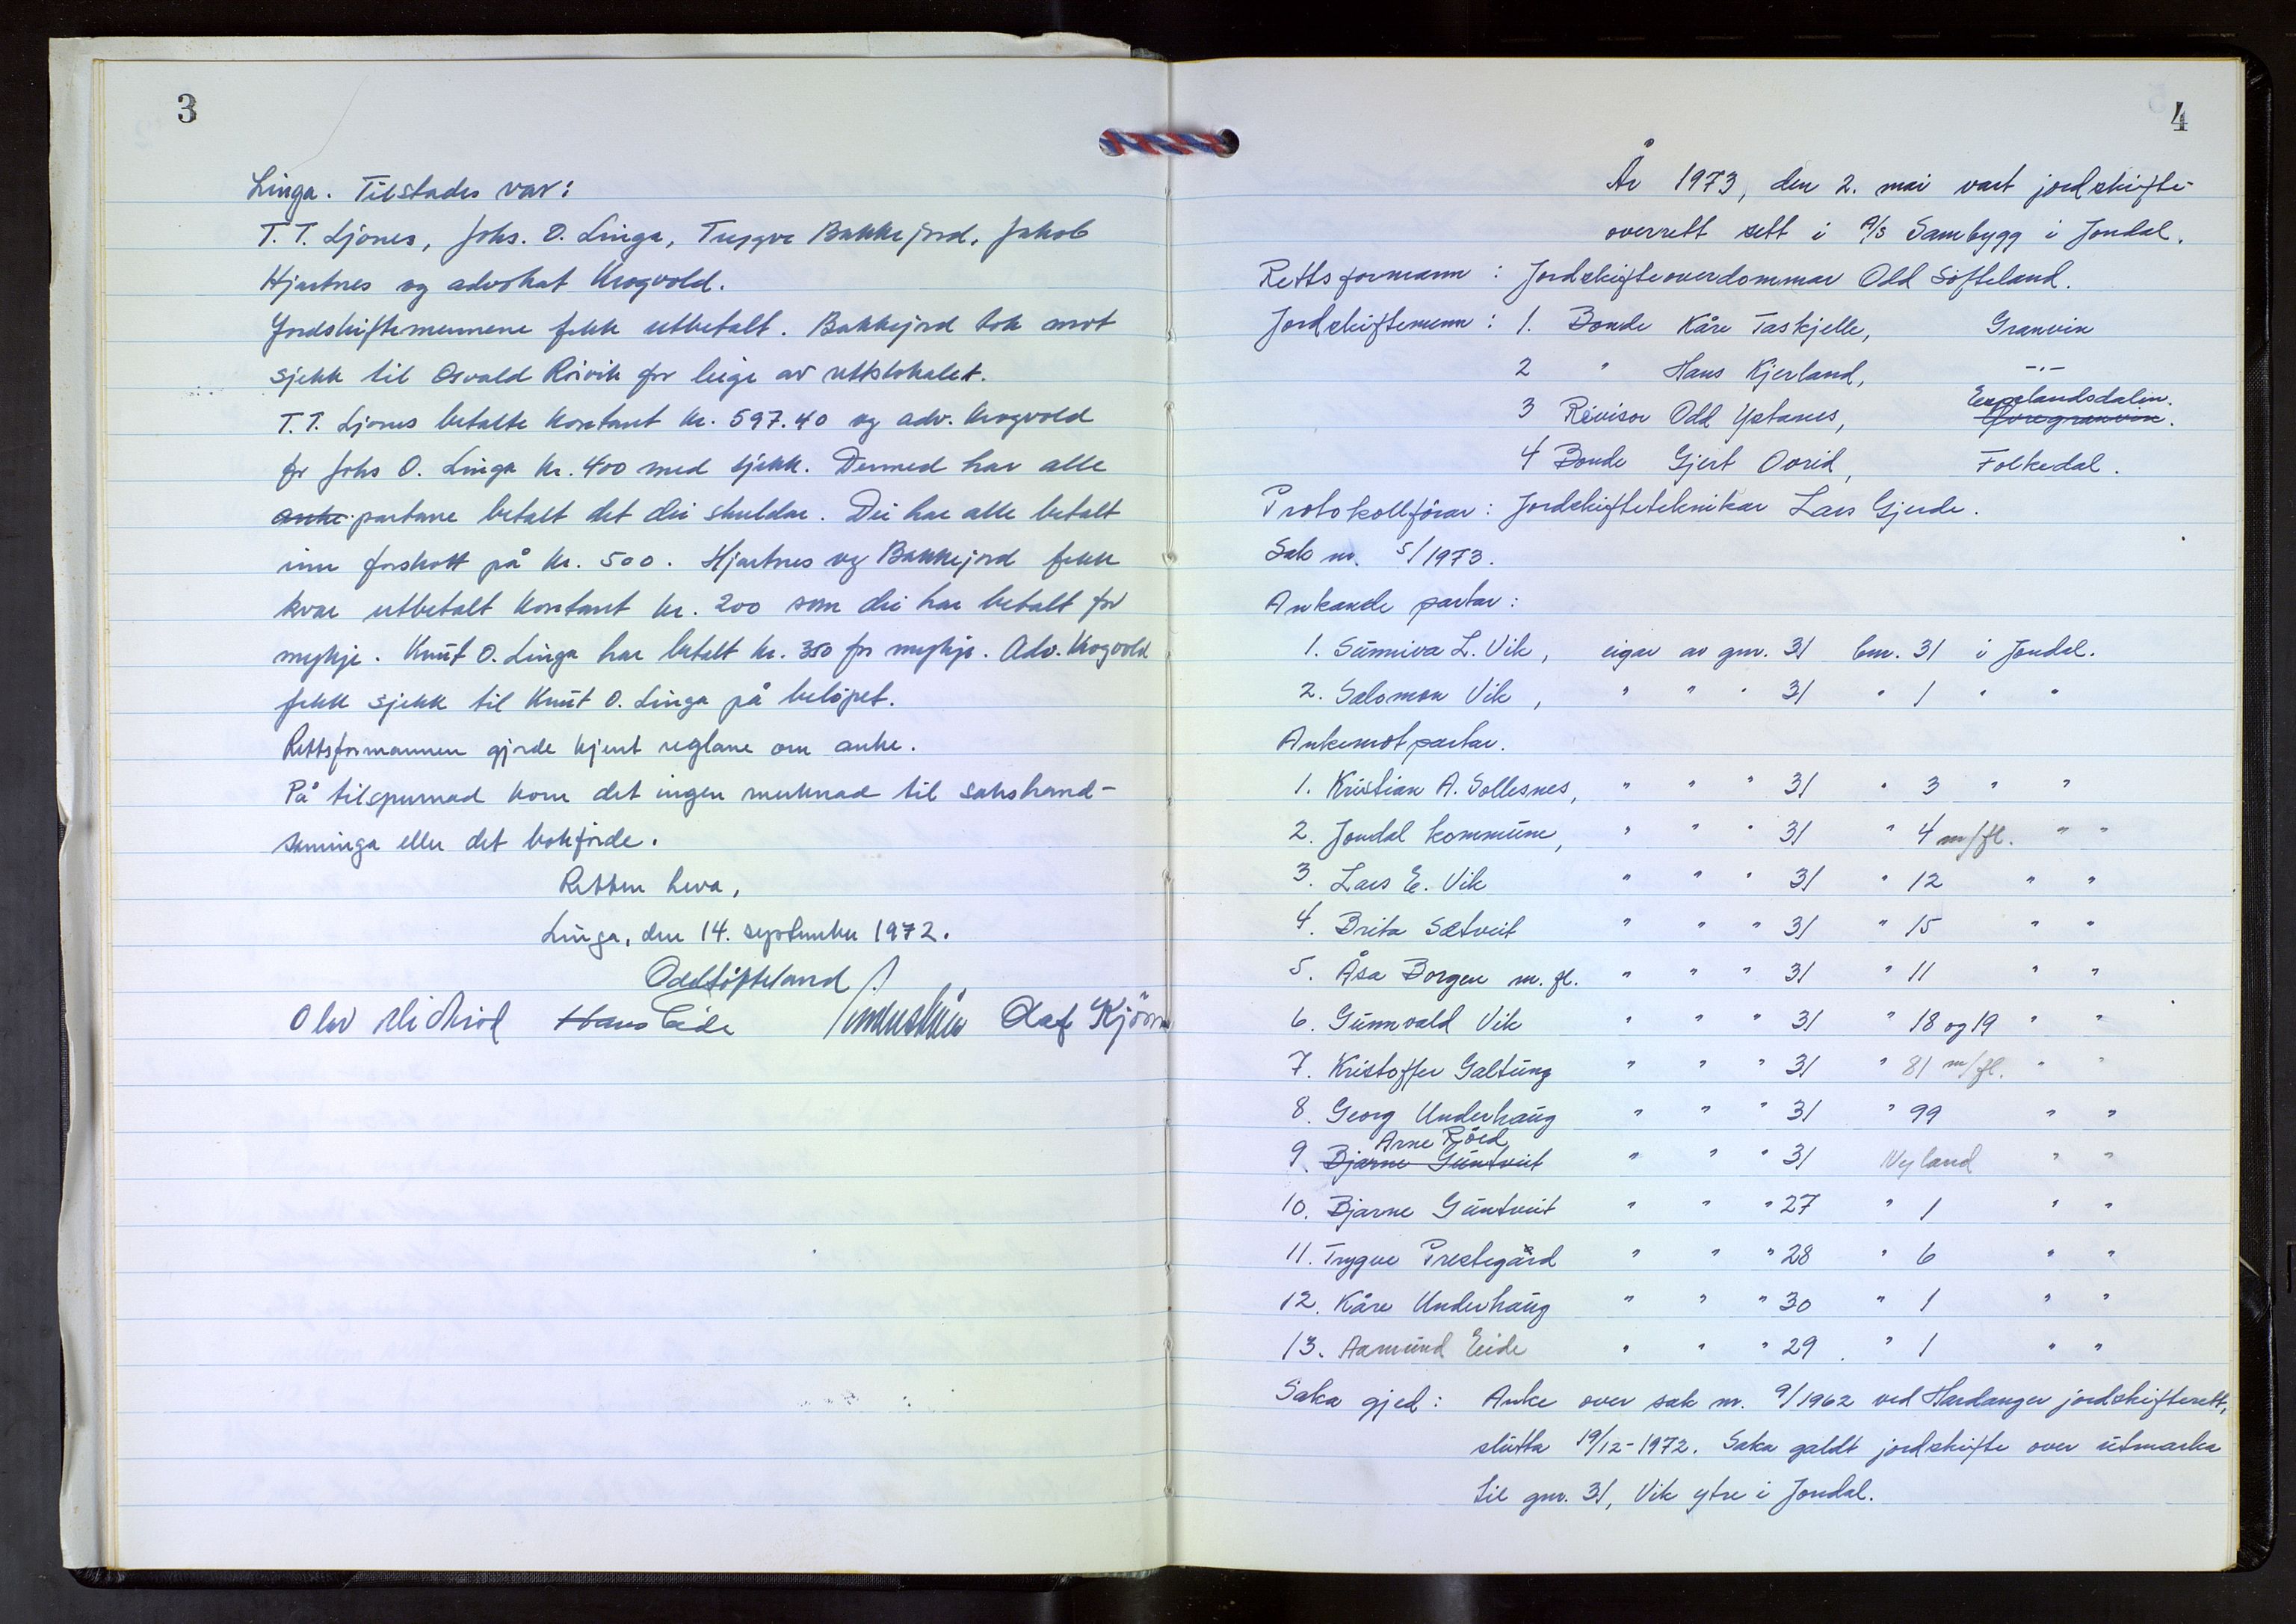 3
Linga. Tilstades var:
T. T. Ljones, Johs. O. Linga, Trygve Bakkejord, Jakob
Hjartnes og advokat Krogvold.
Jordskiftemennene fekk utbetalt. Bakkejord tok mot
sjekk til Osvald Röivik for leige av rettslokalet.
T.T. Ljones betalte kontant kr. 597.40 og adv. Krogvold
for Johs O. Linga kr. 400 med sjekk. Dermed har alle
anke partane betalt det dei skuldar. Dei har alle betalt
inn forskott på kr. 500. Hjartnes og Bakkejord fekk
kvar utbetalt kontant kr. 200 som dei har betalt for
mykje. Knut O. Linga har betalt kr. 350 for mykje. Adv. Krogvold
fekk sjekk til Knut O. Linga på belöpet.
Rettsformannen gjorde kjent reglane om anke.
På tilspurnad kom det ingen merknad til sakshand-
saminga eller det bokförde.
Retten heva,
Linga, den 14. september 1972.
Odd Söfteland
Olav Hans Eide Olaf Kjönn
4
År 1973, den 2. mai vart jordskifte-
overrett sett i A/S Sambygg i Jondal.
Rettsformann: Jordskifteoverdommar Odd Söfteland.
Jordskiftemenn: 1. Bonde Kåre Taskjelle, Granvin
2 " Hans Kjerland, -"-
Espelandsdalen.
3 Revisor Odd Ystanes, Övregranvin.
4 Bonde Gjert Ovrid, Folkedal.
Protokollförar: Jordskifteteknikar Lars Gjerde.
Sak nr. 5/1973.
Ankande partar:
1. Sunniva L. Vik, eigar av gnr. 31 bnr. 31 i Jondal.
2. Salomon Vik, " " " 31 " 1 " "
Ankemotpartar.
1. Kristian A. Sollesnes, " " " 31 " 3 " "
2. Jondal kommune, " " " 31 " 4 m/fl. " "
3. Lars E. Vik " " " 31 " 12 " "
4. Brita Sætveit " " " 31 " 15 " "
5. Åsa Borgen m. fl. " " " 31 " 11 " "
6. Gunnvald Vik " " " 31 " 18 og 19 " "
7. Kristoffer Galtung " " " 31 " 81 m/fl. " "
8. Georg Underhaug " " " 31 " 99 " "
Arne Röed
9. Bjarne Guntveit " " " 31 Nyland " "
10. Bjarne Guntveit " " " 27 " 1 " "
11. Trygve Prestegård " " " 28 " 6 " "
12. Kåre Underhaug " " " 30 " 1 " "
13. Aamund Eide " " " 29 " 1 " "
Saka gjeld: Anke over sak nr. 9/1962 ved Hardanger jordskifterett,
slutta 19/12-1972. Saka galdt jordskifte over utmarka
til gnr. 31, Vik ytre i Jondal.